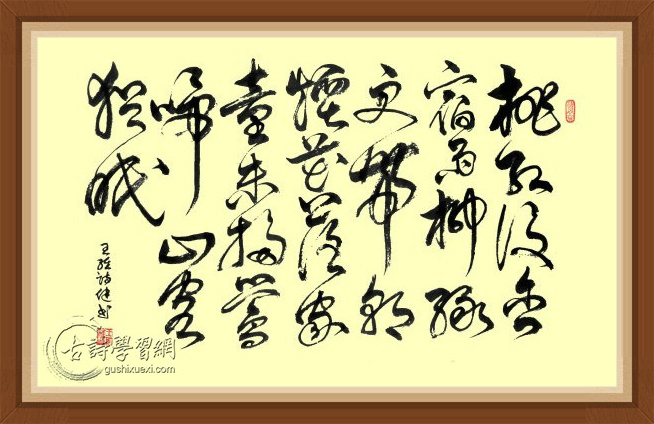 桃红復含
宿雨柳绿
更帶朝
煙花落家
童未掃鶯
啼山客
猶眠
王維詩健書
古詩學習網
gushixuexi.com